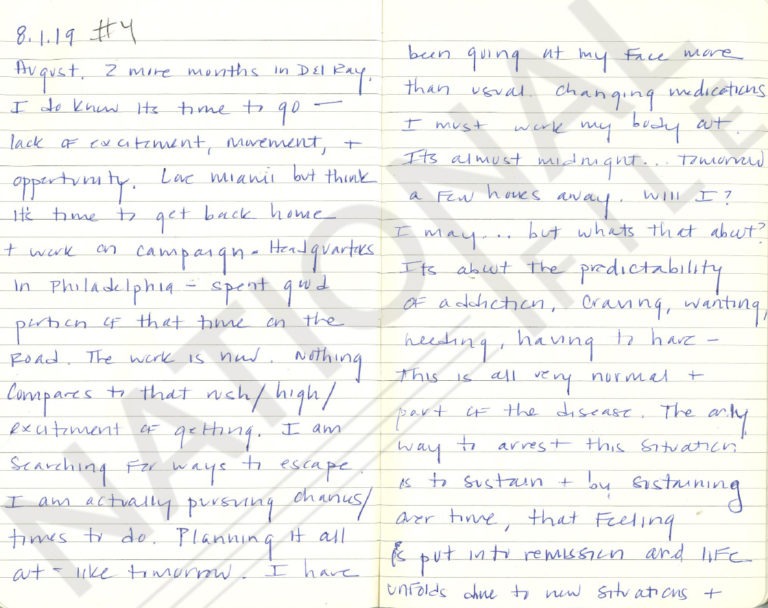 8.1.19 #4
August. 2 more months in Del Ray.
I do know its time to go —
lack of excitement, movement, +
opportunity. Love miami but think
It's time to get back home
+ work on campaign - Headquarters
in Philadelphia - spent good
portion of that time on the
Road. The work is now. Nothing
Compares to that rush/high/
excitement of getting. I am
Searching for ways to escape.
I am actually pursuing chances/
times to do. Planning it all
out - like tomorrow. I have
been going at my Face more
than usual. Changing medications
I must work my body out.
Its almost midnight... Tomorrow
a few hours away. Will I?
I may... but whats that about?
Its about the predictability
of addiction, Craving, wanting,
needing, having to have -
This is all very normal +
part of the disease. The only
way to arrest this situation
is to sustain + by sustaining
over time, that Feeling
is put into remission and life
unfolds due to new situations +
NATIONAL
FILE